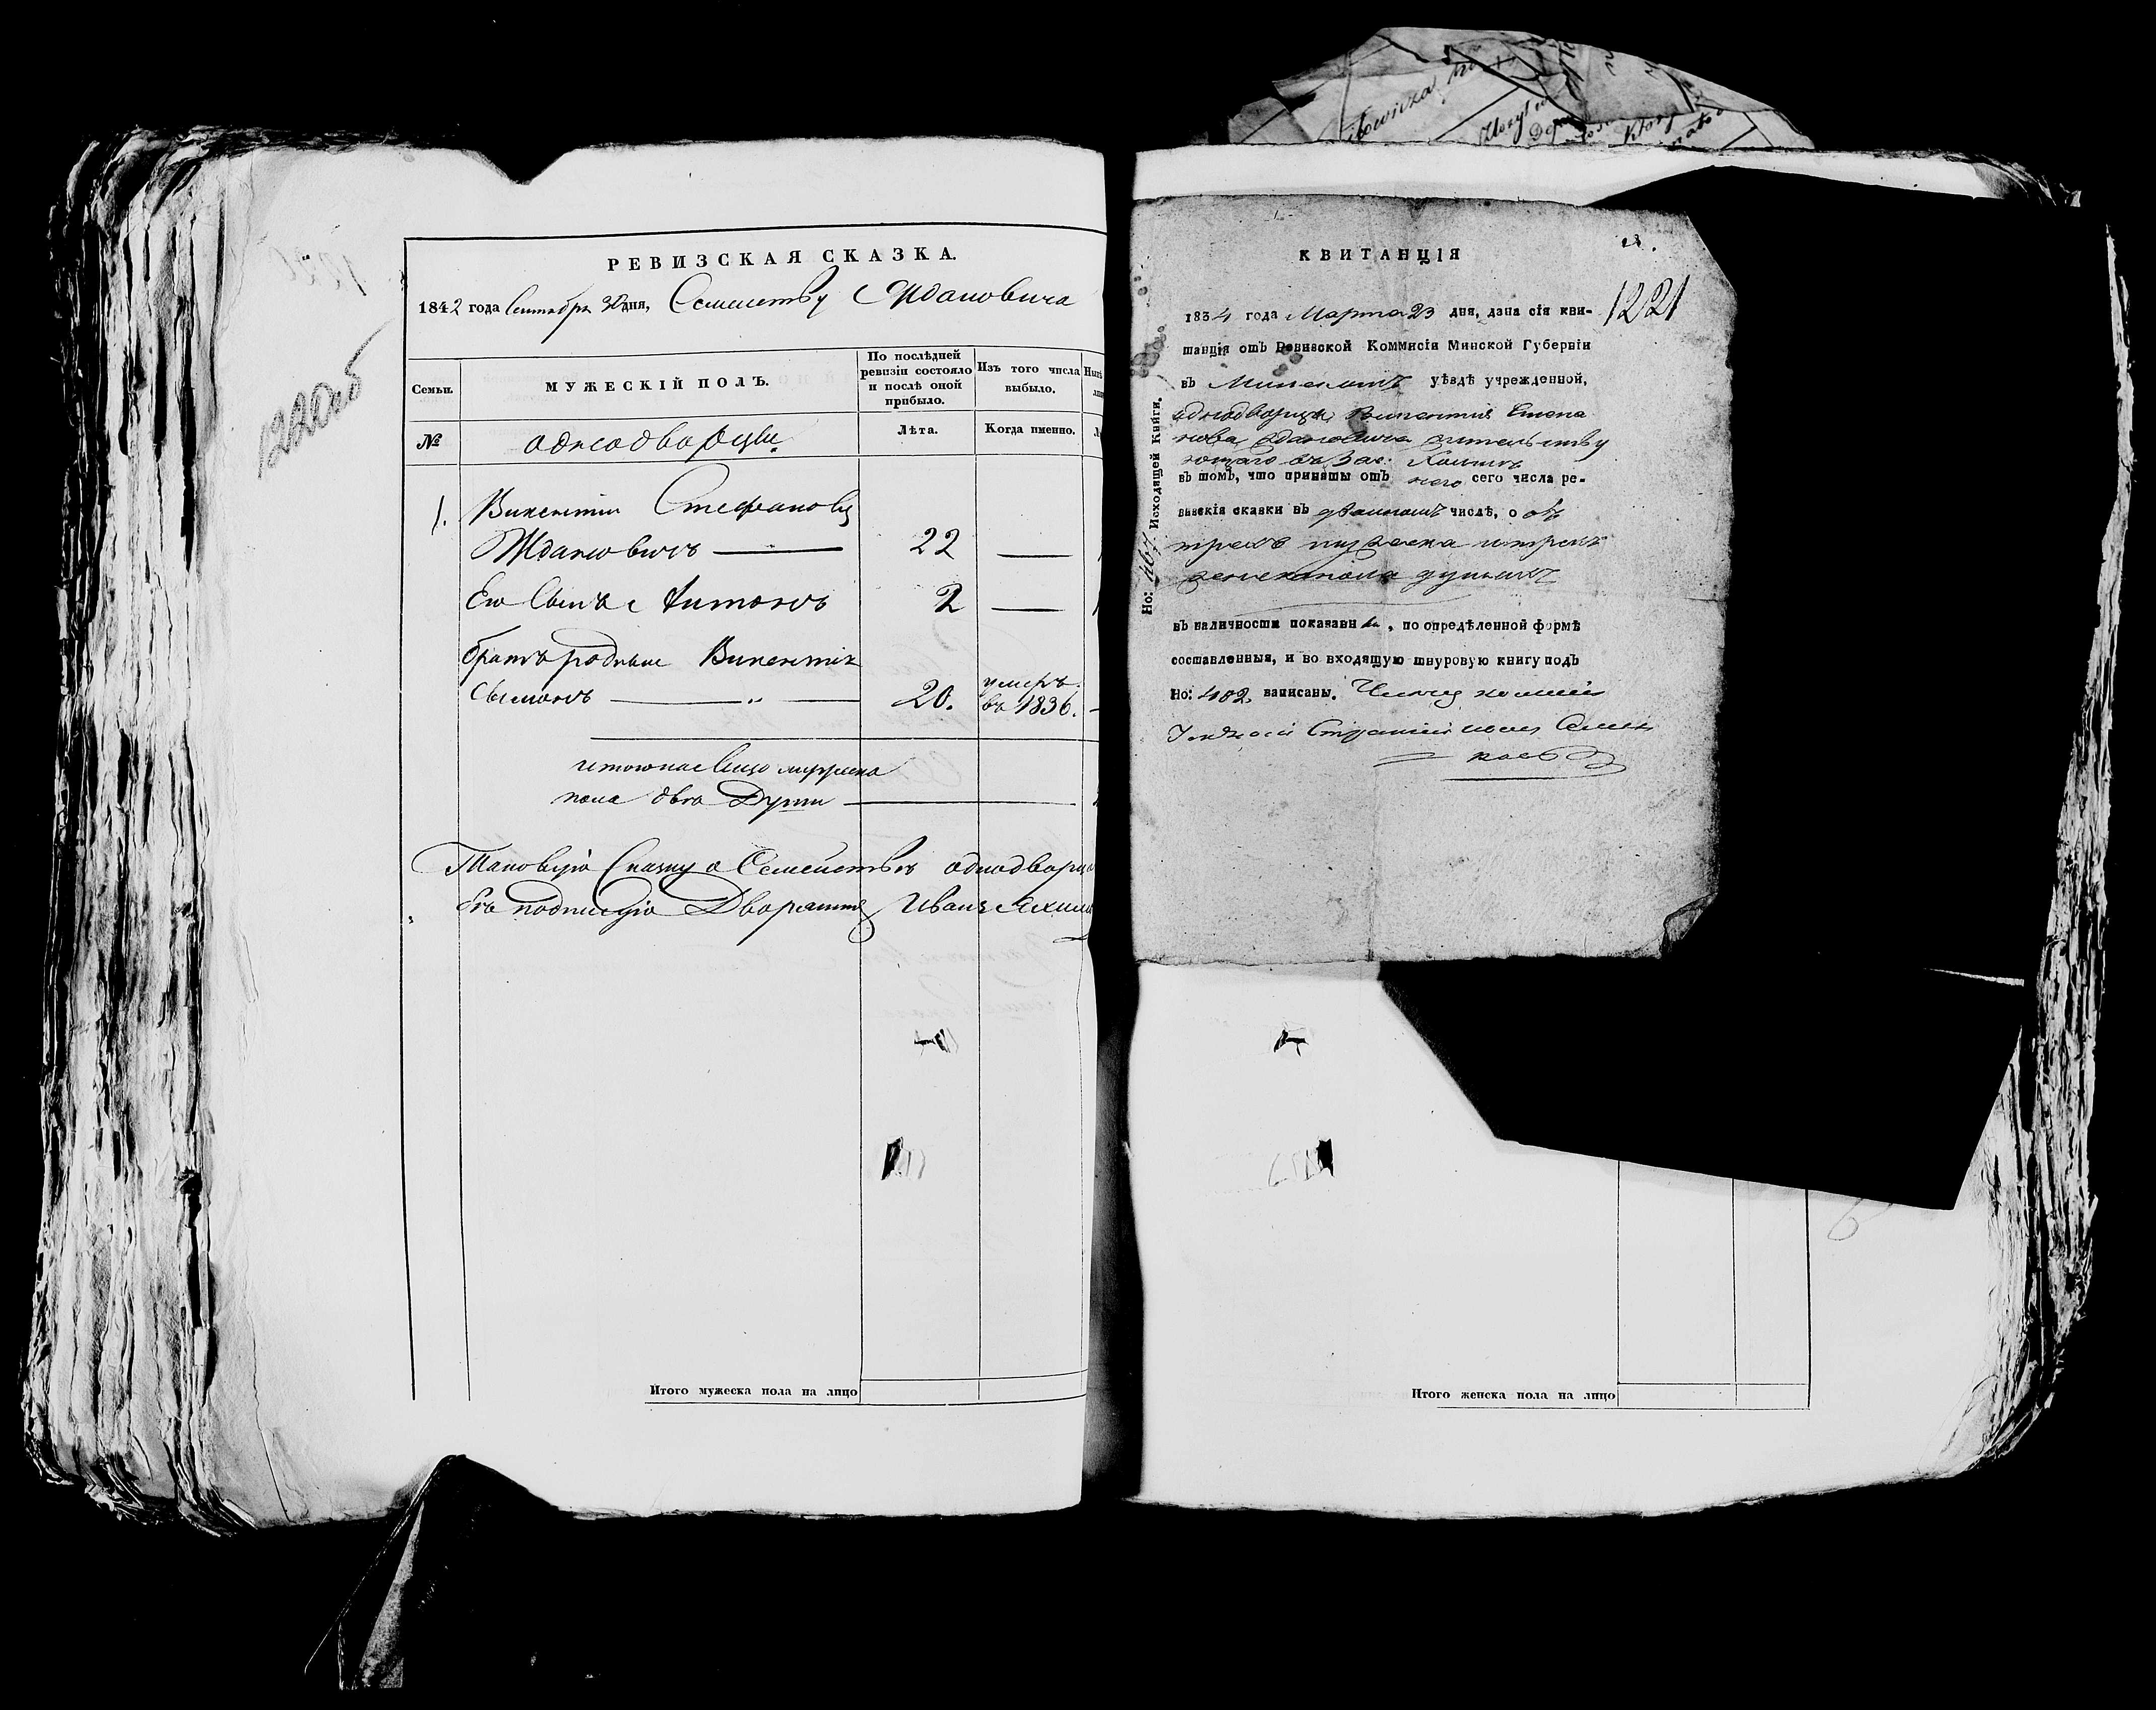 РЕВИЗСКАЯ СКАЗКА.
1842 года Сентября 30 дня, Семейству Ждановича
Семьи.
МУЖЕСКІЙ ПОЛЪ.
По послѣдней ревизіи состояло и послѣ оной прибыло.
Изъ того числа выбыло.
№
однодворцы.
Лѣта.
Когда именно.
1. Викентій Стефановъ
Ждановичъ 22
Его Сынъ Антонъ 2
братъ родные Викентія
Сымонъ 20. умеръ въ 1836.
итого на лицо мужеска
пола два Души
Таковую Сказку о Семействѣ однодворц
подписую Дворянинъ Иванъ
Итого мужеска пола на лицо
1220об
КВИТАНЦІЯ
1221
1834 года Марта 23 дня, дана сія кви-
танція отъ Ревизской Коммисіи Минской Губерніи
въ Минскомъ уѣздѣ учрежденной,
однодворцу Викентія Степа
нова Ждановича жительству
ющаго въ Зас.
въ томъ, что приняты отъ него сего числа ре-
визскія сказки въ двойномъ числѣ, о
трехъ мужеска и трехъ
женска пола душахъ
въ наличности показанны, по опредѣленной формѣ
составленныя, и во входящую шнуровую книгу подъ
Но: 402, записаны.
Но: Исходящей Книги.
Итого женска пола на лицо